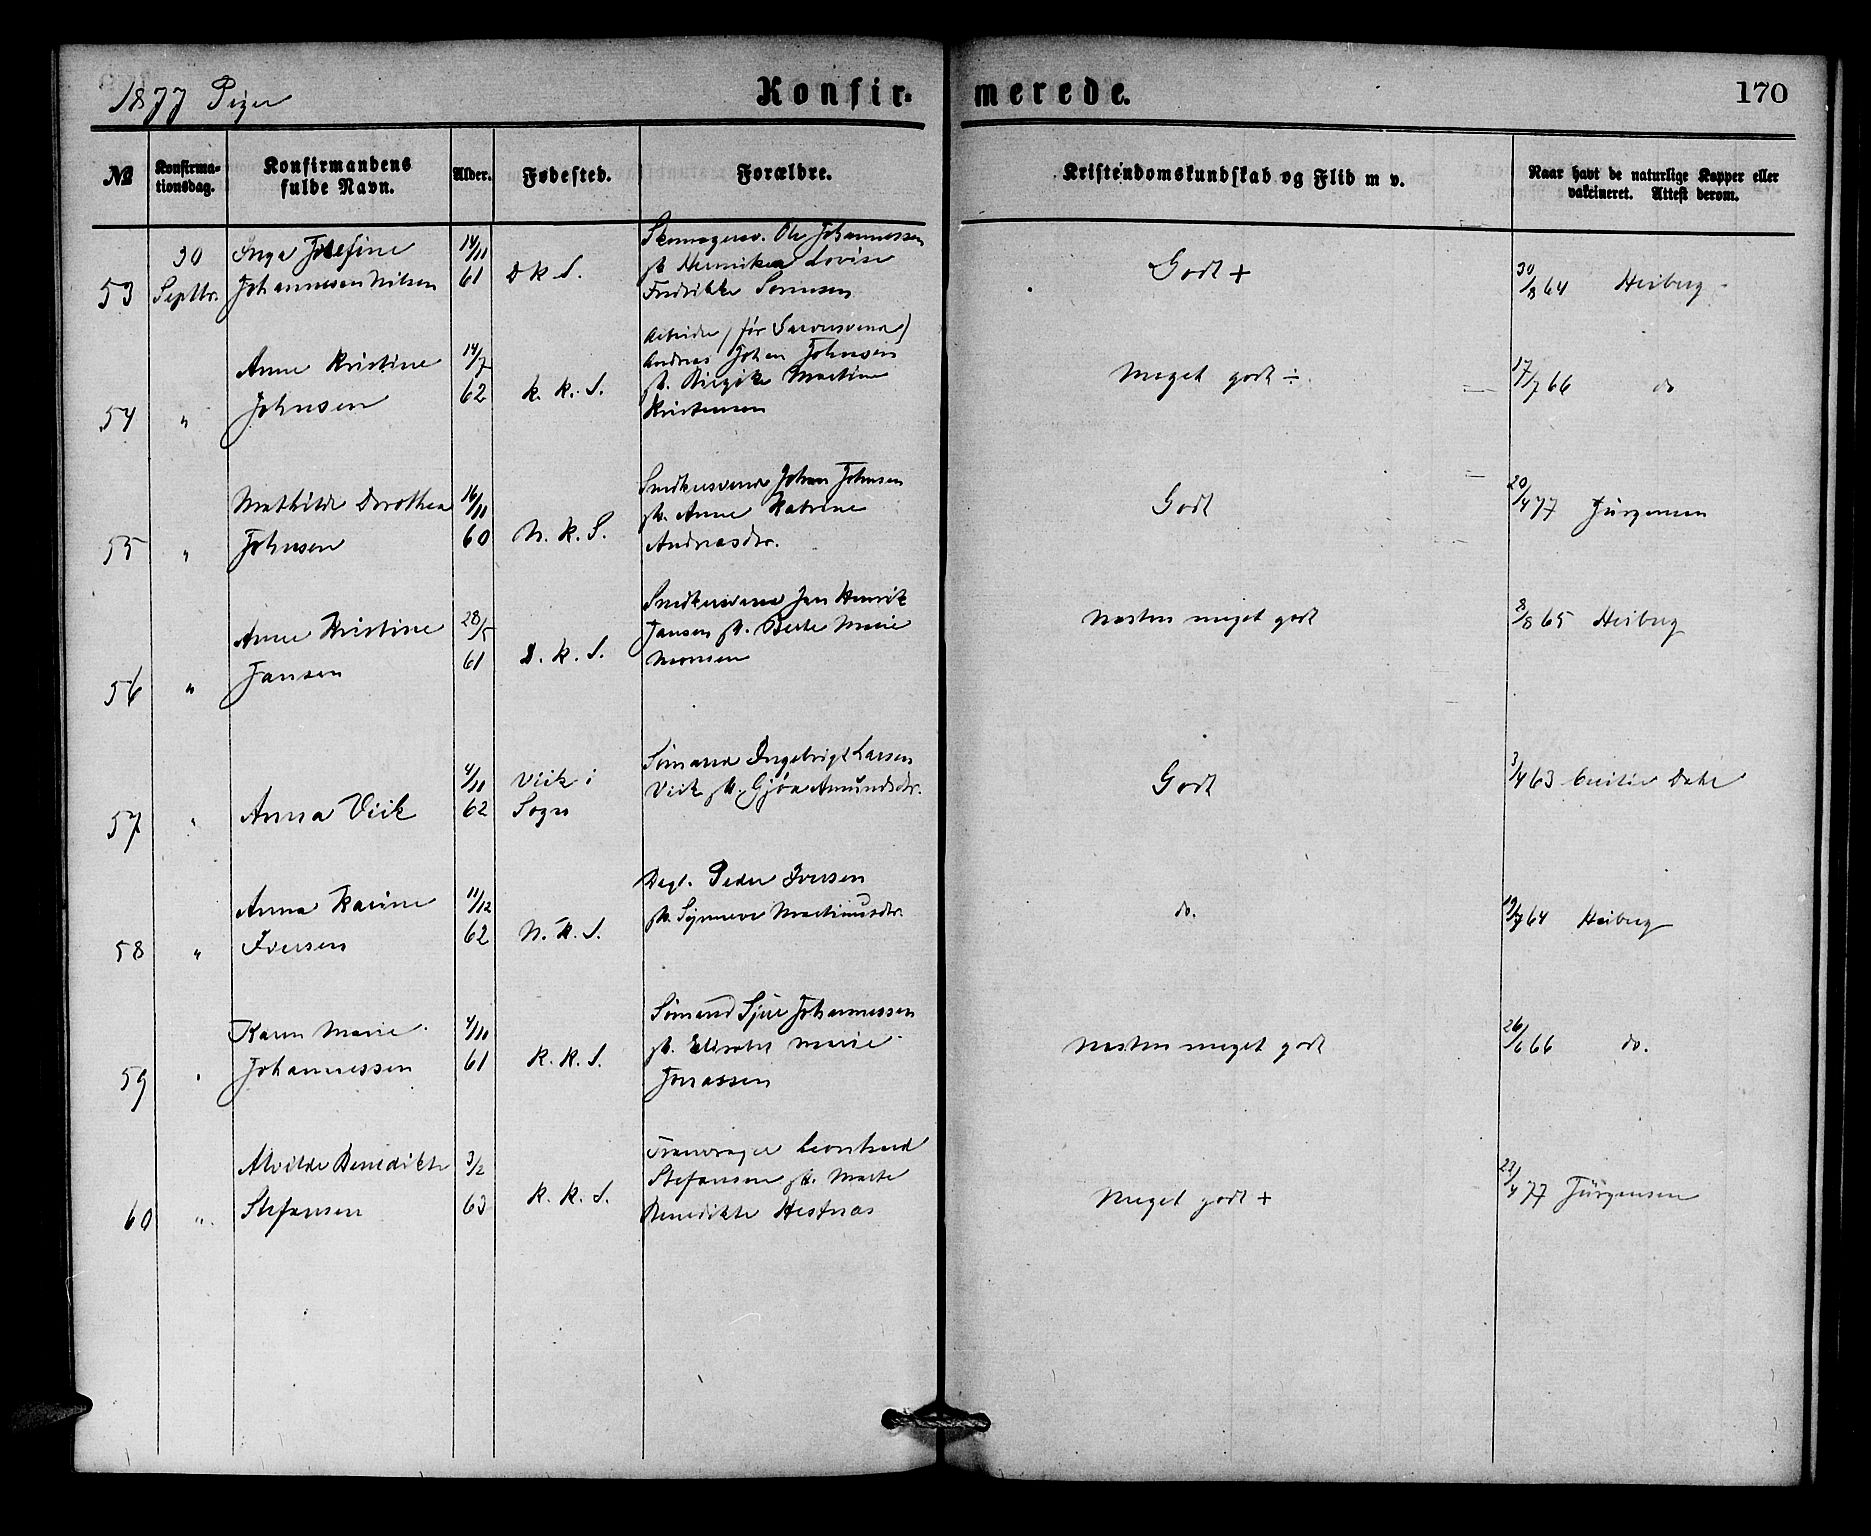 1877 Piger
Konfir-
merede.
170
№
Konfirma-
tionsdag.
Konfirmandens
fulde Navn.
Alder.
Fødested.
Forældre.
Kristendomskundskab og Flid m v.
Naar havt de naturlige Kopper eller
vakcineret. Attest derom.
53
30
Septbr.
Inga Josefine
Johannesen Nilsen
14/11
61
D K S.
Skomagersv. Ole Johannessen
Henrikea Lovise
Fredrikke Sørensen
Godt +
30/8 64 Heiberg
54
"
Anne Kristine
Johnsen
14/7
62
K. K. S.
Arbeider (før Svend)
Andreas Johan Johnsen
Martine
Kristensen
Meget godt ÷
17/7 66 do
55
"
Mathilde Dorothea
Johnsen
16/11
60
N. K. S.
Snedkersvend Johan Johnsen
Anne Katrine
Andreasdr.
Godt
20/4 77 Jürgensen
56
"
Anne Kristine
Jansen
28/5
61
D. K. S.
Snedkersvend Jan Henrik
Jansen Berte Marie
Monsen
Næsten meget godt
8/8 65 Heiberg
57
"
Anna Viik
4/11
62
Viik i
Sogn
Sømand Ingebrigt Larsen
Viik Gjøa Amundsdr.
Godt
3/4 63 Cecilie Dahl
58
"
Anna Karine
Iversen
11/12
62
N. K. S.
Dagl. Peder Iversen
Synneve Martinusdr.
do.
19/7 64 Heiberg
59
"
Karen Marie
Johannessen
4/11
61
K. K. S.
Sømand Sjur Johannessen
Elisabet Marie
Jonassen
Næsten meget godt
26/6 66 do.
60
"
Alvilde Benedikte
Stefansen
3/2
63
K. K. S.
Leonhard
Stefansen Marte
Benedikte Hestnæs
Meget godt +
23/4 77 Jürgensen